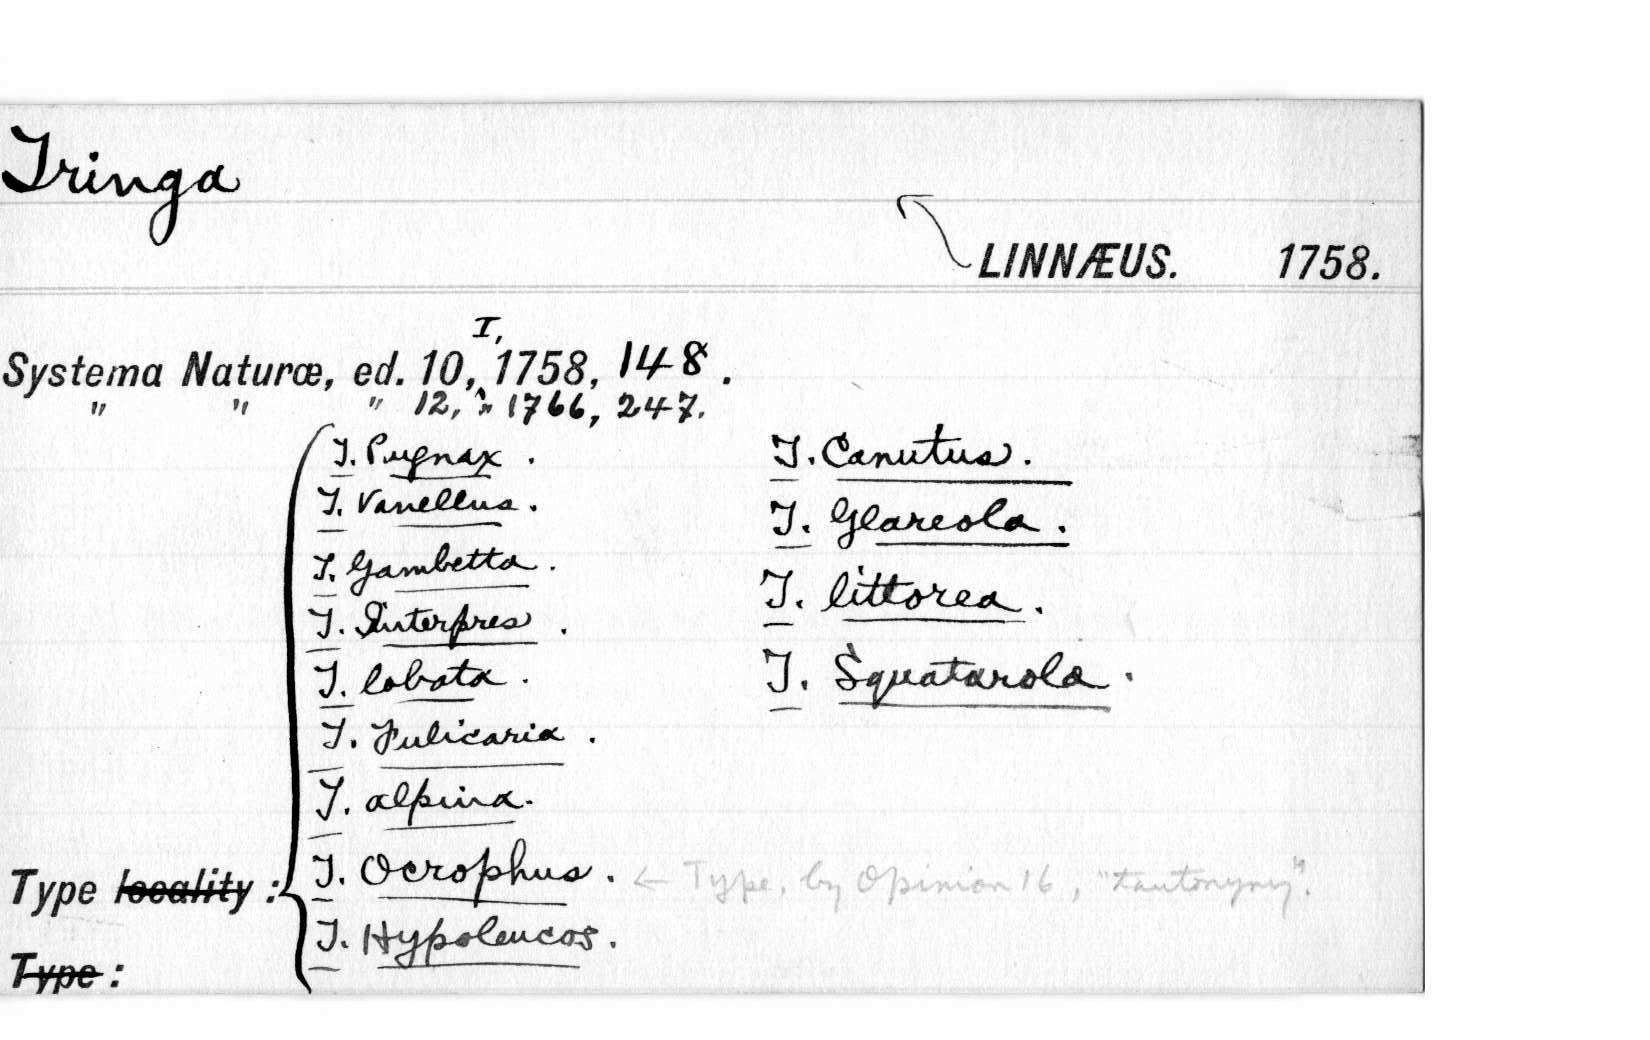 Tringa
LINNÆUS. 1758.
I,
Systema Naturæ, ed. 10, 1758, 148.
" " " 12, " 1766, 247.
T. Pugnax.
T. Vanellus.
T. Gambetta.
T. Interpres.
T. lobata.
T. Fulicaria.
T. alpina.
Type locality: T. Ocrophus. ← Type, by Opinion 16, "tautonymy".
T. Hypoleucos.
Type:
T. Canutus.
T. Glareola.
T. littorea.
T. Squatarola.